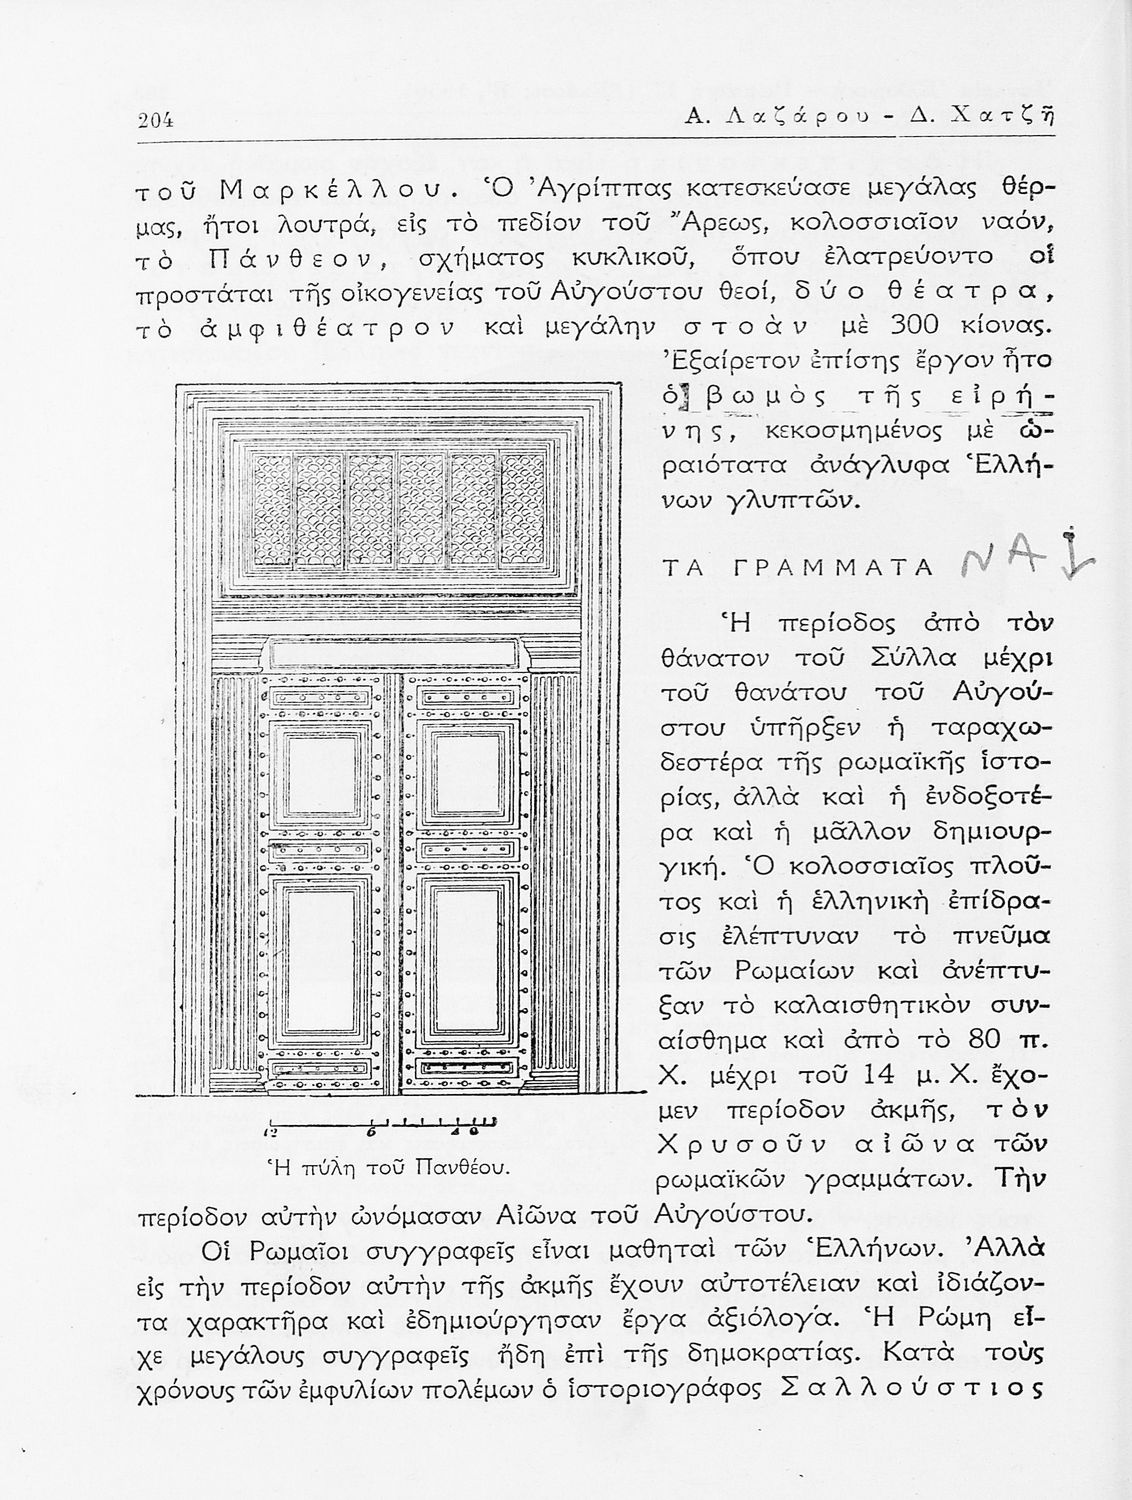 204
Α. Λαζάρου - Δ. Χατζῆ
τοῦ Μαρκέλλου. Ὁ Ἀγρίππας κατεσκεύασε μεγάλας θέρ-
μας, ἤτοι λουτρά, εἰς τὸ πεδίον τοῦ Ἄρεως, κολοσσιαῖον ναόν,
τὸ Πάνθεον, σχήματος κυκλικοῦ, ὅπου ἐλατρεύοντο οἱ
προστάται τῆς οἰκογενείας τοῦ Αὐγούστου θεοί, δύο θέατρα,
τὸ ἀμφιθέατρον καὶ μεγάλην στοὰν μὲ 300 κίονας.
Ἐξαίρετον ἐπίσης ἔργον ἦτο
ὁ βωμὸς τῆς εἰρή-
νης, κεκοσμημένος μὲ ὡ-
ραιότατα ἀνάγλυφα Ἑλλή-
νων γλυπτῶν.
ΤΑ ΓΡΑΜΜΑΤΑ ΝΑΙ
Ἡ περίοδος ἀπὸ τὸν
θάνατον τοῦ Σύλλα μέχρι
τοῦ θανάτου τοῦ Αὐγού-
στου ὑπῆρξεν ἡ ταραχω-
δεστέρα τῆς ρωμαϊκῆς ἱστο-
ρίας, ἀλλὰ καὶ ἡ ἐνδοξοτέ-
ρα καὶ ἡ μᾶλλον δημιουρ-
γική. Ὁ κολοσσιαῖος πλοῦ-
τος καὶ ἡ ἑλληνικὴ ἐπίδρα-
σις ἐλέπτυναν τὸ πνεῦμα
τῶν Ρωμαίων καὶ ἀνέπτυ-
ξαν τὸ καλαισθητικὸν συν-
αίσθημα καὶ ἀπὸ τὸ 80 π.
Χ. μέχρι τοῦ 14 μ. Χ. ἔχο-
μεν περίοδον ἀκμῆς, τὸν
Χρυσοῦν αἰῶνα τῶν
ρωμαϊκῶν γραμμάτων. Τὴν
12 6
Ἡ πύλη τοῦ Πανθέου.
περίοδον αὐτὴν ὠνόμασαν Αἰῶνα τοῦ Αὐγούστου.
Οἱ Ρωμαῖοι συγγραφεῖς εἶναι μαθηταὶ τῶν Ἑλλήνων. Ἀλλὰ
εἰς τὴν περίοδον αὐτὴν τῆς ἀκμῆς ἔχουν αὐτοτέλειαν καὶ ἰδιάζον-
τα χαρακτῆρα καὶ ἐδημιούργησαν ἔργα ἀξιόλογα. Ἡ Ρώμη εἶ-
χε μεγάλους συγγραφεῖς ἤδη ἐπὶ τῆς δημοκρατίας. Κατὰ τοὺς
χρόνους τῶν ἐμφυλίων πολέμων ὁ ἱστοριογράφος Σαλλούστιος